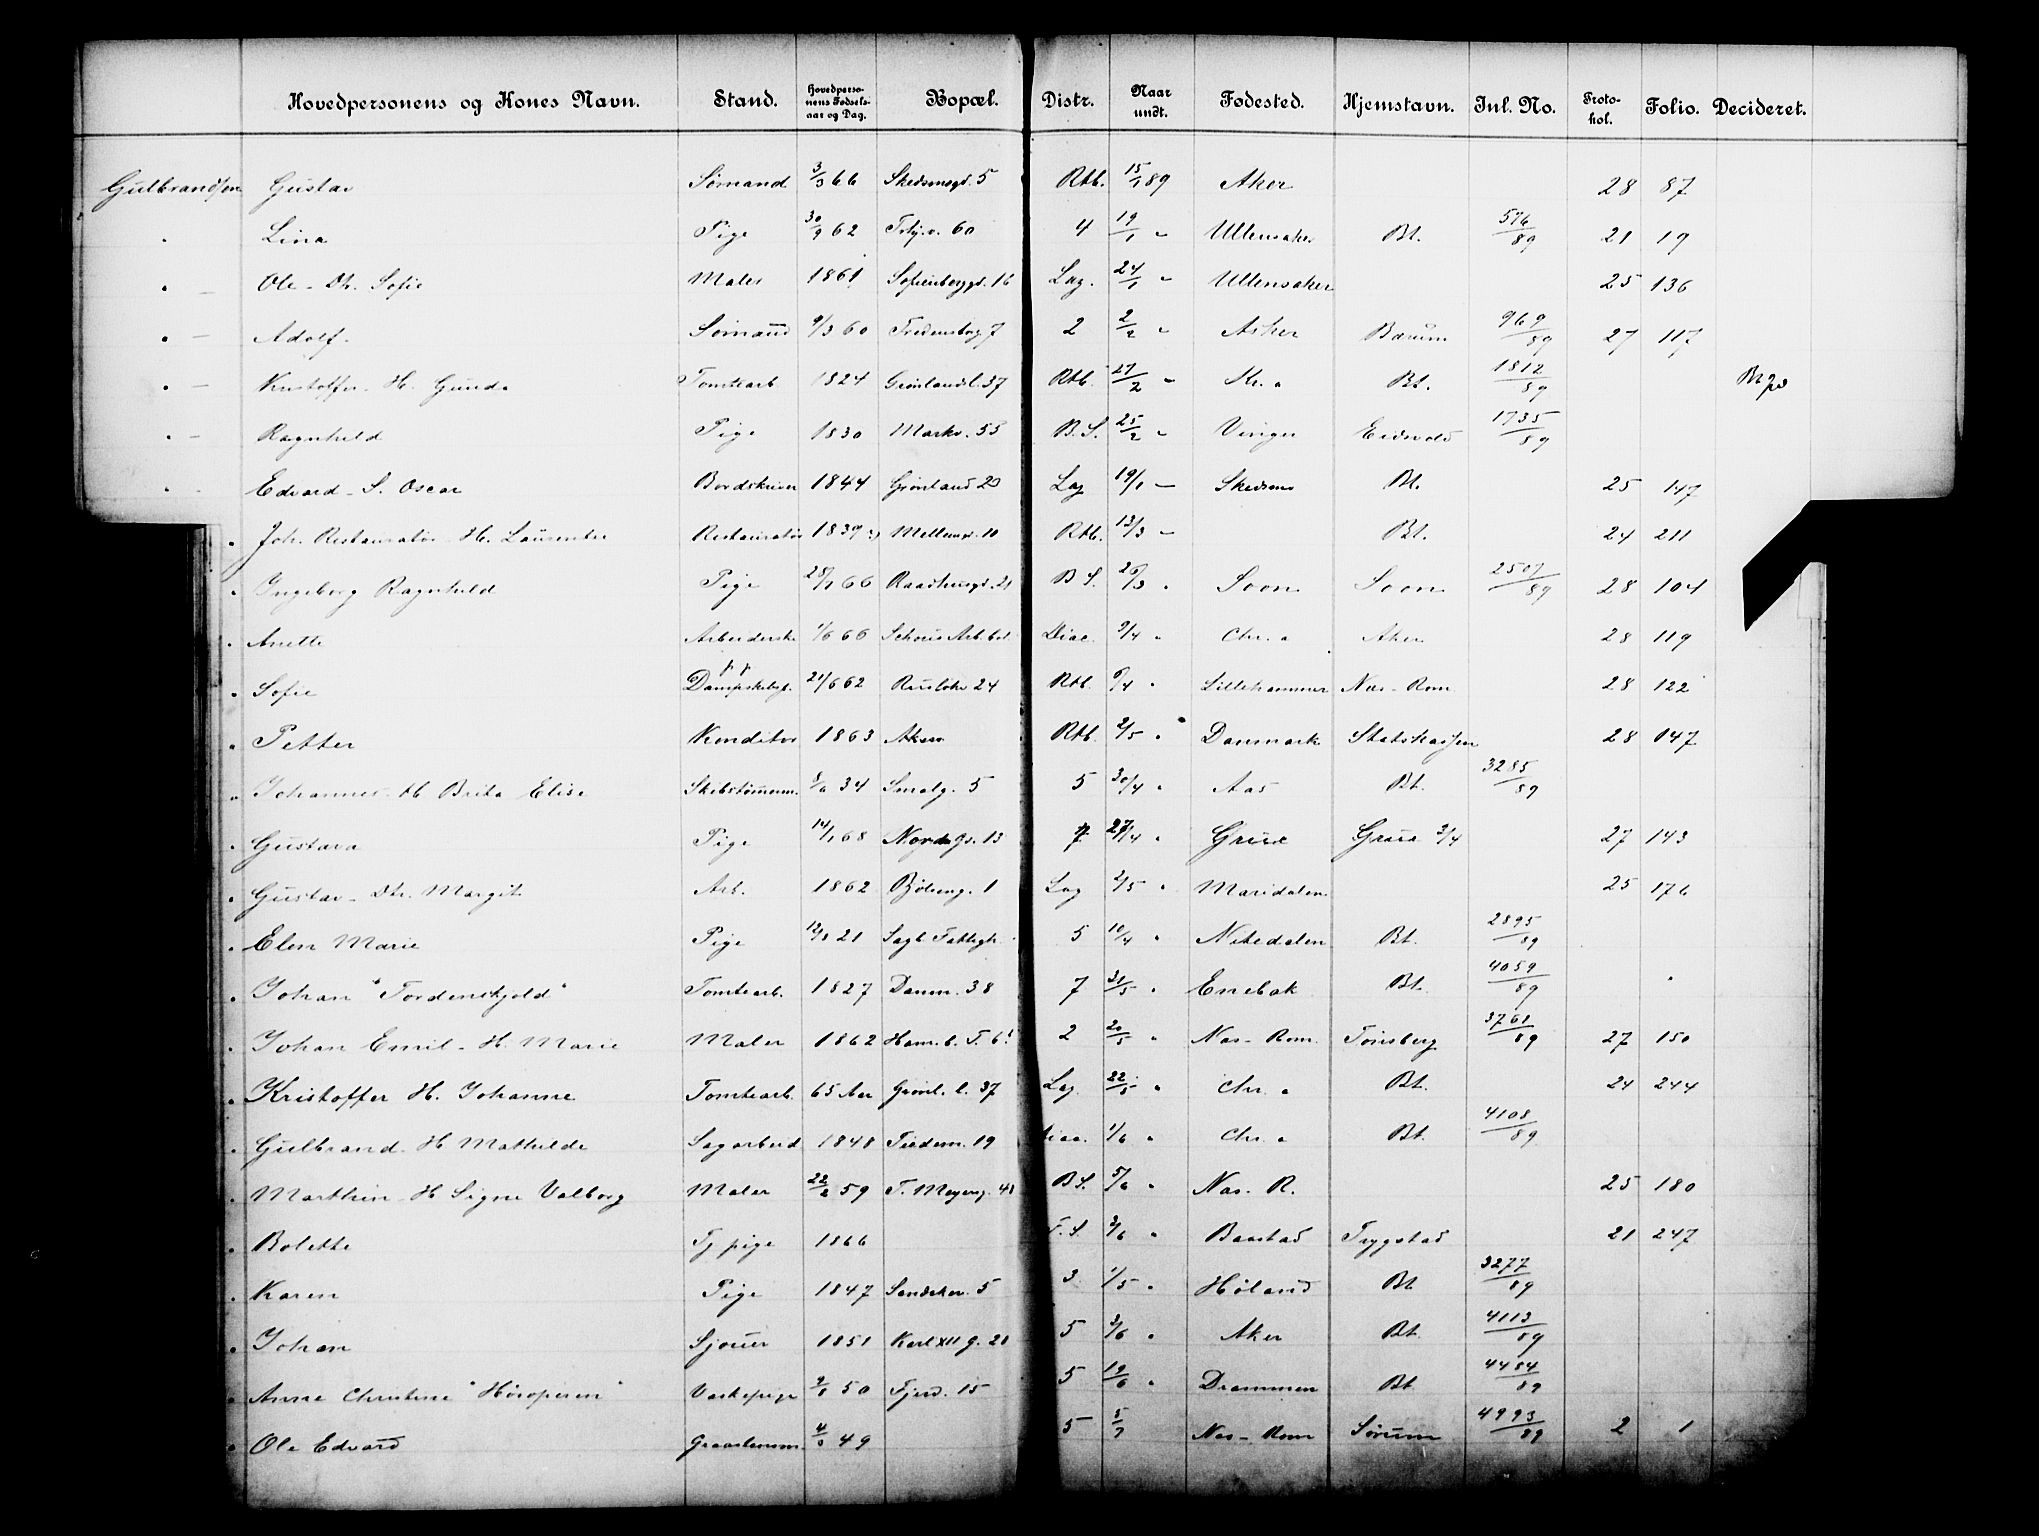 Hovedpersonens og Kones Navn. Stand. Hovedperso-nens Fødsels-aar og Dag. Bopæl. Distr. Naar undt. Fødested. Hjemstavn. Jnl. No. Proto-kol. Folio. Decideret.
Gulbrandsen Gustav Sømand 3/3 66 Skedsmogd. 5 Rtb. 15/1 89 Aker 28 87
" Lina Pige 30/9 62 60 4 19/1 " Ullensaker Bt. 576/89 21 19
" - Ole - Dtr. Sofie Maler 1861 Sofienberggd. 16 Lag. 24/1 " Ullensaker 25 136
" - Adolf. Sømand 9/3 60 Fredensbog 7 2 2/2 " Asker Bærum 969/89 27 117
" - Kristoffer - H. Gunda Tomtearb 1824 Grønlandsl. 37 Rtb. 27/2 " Kr. a Bt. 1812/89
" - Ragnhild Pige 1830 Markv. 55 B. S. 25/2 " Vinger Eidsvold 1735/89
" - Edvard - S. Oscar Bordskriver 1844 Grønland 20 Lag 19/1 " Skedsmo Bt. 25 147
" Joh. Restauratør - H. Laurentze Restauratør 1839 Møllergd. 10 Rtb. 13/3 " Bt. 24 211
" Ingeborg Ragnhild Pige 28/1 66 Raadhusgd. 21 B S. 26/3 " Soon Soon 2507/89 28 104
" Anette Arbeiderske 1/6 66 Schous Arb. bol. Diac. 9/4 " Chr. a Aker 28 119
" Sofie Dampskibsp. 21/6 62 Ruseløkv 24 Rtb. 6/4 " Lillehammer Næs - Rom. 28 122
" Petter Konditor 1863 Aker Rtb. 2/5 " Danmark Statskassen 28 147
" Johannes - H. Brita Elise Skibstømmerm. 8/6 34 Smalg. 5 5 30/4 " Aas Bt. 3285/89
" Gustava Pige 14/1 68 Nordgs. 13 7 27/4 " Grue Grue 2/4 27 143
" Gustav - Dtr. Margit Arb. 1862 1 Lag 2/5 " Maridalen 25 176
" Elen Marie Pige 21 Sagb. Fattigh. 5 10/4 " Nitedalen Bt. 2895/89
" Johan "Tordenskjold" Tomtearb. 1827 Danm. 38 7 31/5 " Enebak Bt. 4059/89
" Johan Emil - H. Marie Maler 1862 2 20/5 " Næs - Rom. Tønsberg 3761/89 27 150
" Kristoffer H. Johanne Tomtearb. 65 Aar Grønl. l. 37 Lag 22/5 " Chr. a Bt. 24 244
" Gulbrand - H Mathilde Sagarbeid 1848 Tiedem. 19 Diac. 1/6 " Chr. a Bt. 4108/89
" Marthin - H Signe Valborg Maler 22/2 59 T. Meyersg. 41 B S. 5/6 " Næs - R. 25 180
" Bolette Tj. pige 1866 F. S. 3/6 " Baastad Trygstad 21 247
" Karen Pige 1847 Sandaker. 5 3 1/5 " Høland Bt 3277/89
" Johan Sjouer 1851 Karl XII g. 20 5 3/6 " Aker Bt. 4113/89
" Anne Christine "Høroperen" Vaskepige 50 Fjerd. 15 5 12/6 " Drammen Bt 4484/89
" Ole Edvard Graastensm. 49 5 5/7 Næs - Rom Sørum 4993/89 2 1